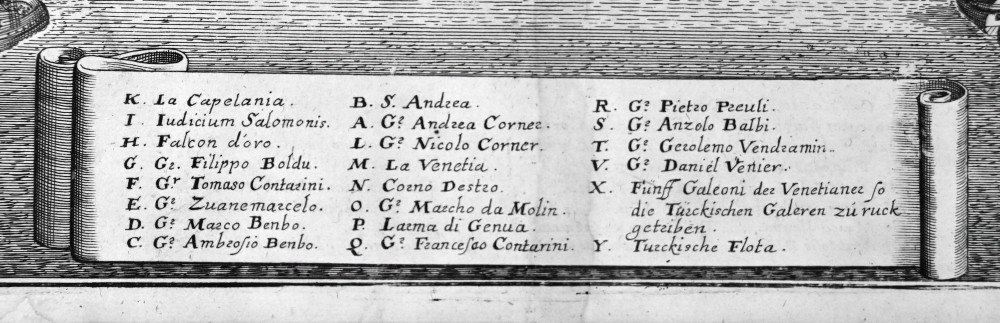 K. La Capelania.
I. Iudicium Salomonis.
H. Falcon d'oro.
G. Gr. Filippo Boldu.
F. Gr Tomaso Contarini.
E. Gr Zuanemarcelo.
D. Gr Marco Benbo.
C. Gr Ambrosiò Benbo.
B. S. Andrea.
A. Gr Andrea Corner.
L. Gr Nicolo Corner.
M. La Venetia.
N. Corno Destro.
O. Gr Marcho da Molin.
P. Larma di Genua.
Q. Gr Francesco Contarini.
R. Gr Pietro Preuli.
S. Gr Anzolo Balbi.
T. Gr Gerolemo Vendramin.
V. Gr Daniël Venier.
X. Fünff Galeoni der Venetianer so
die Türckischen Galeren zú ruck
getriben.
Y. Turckische Flota.